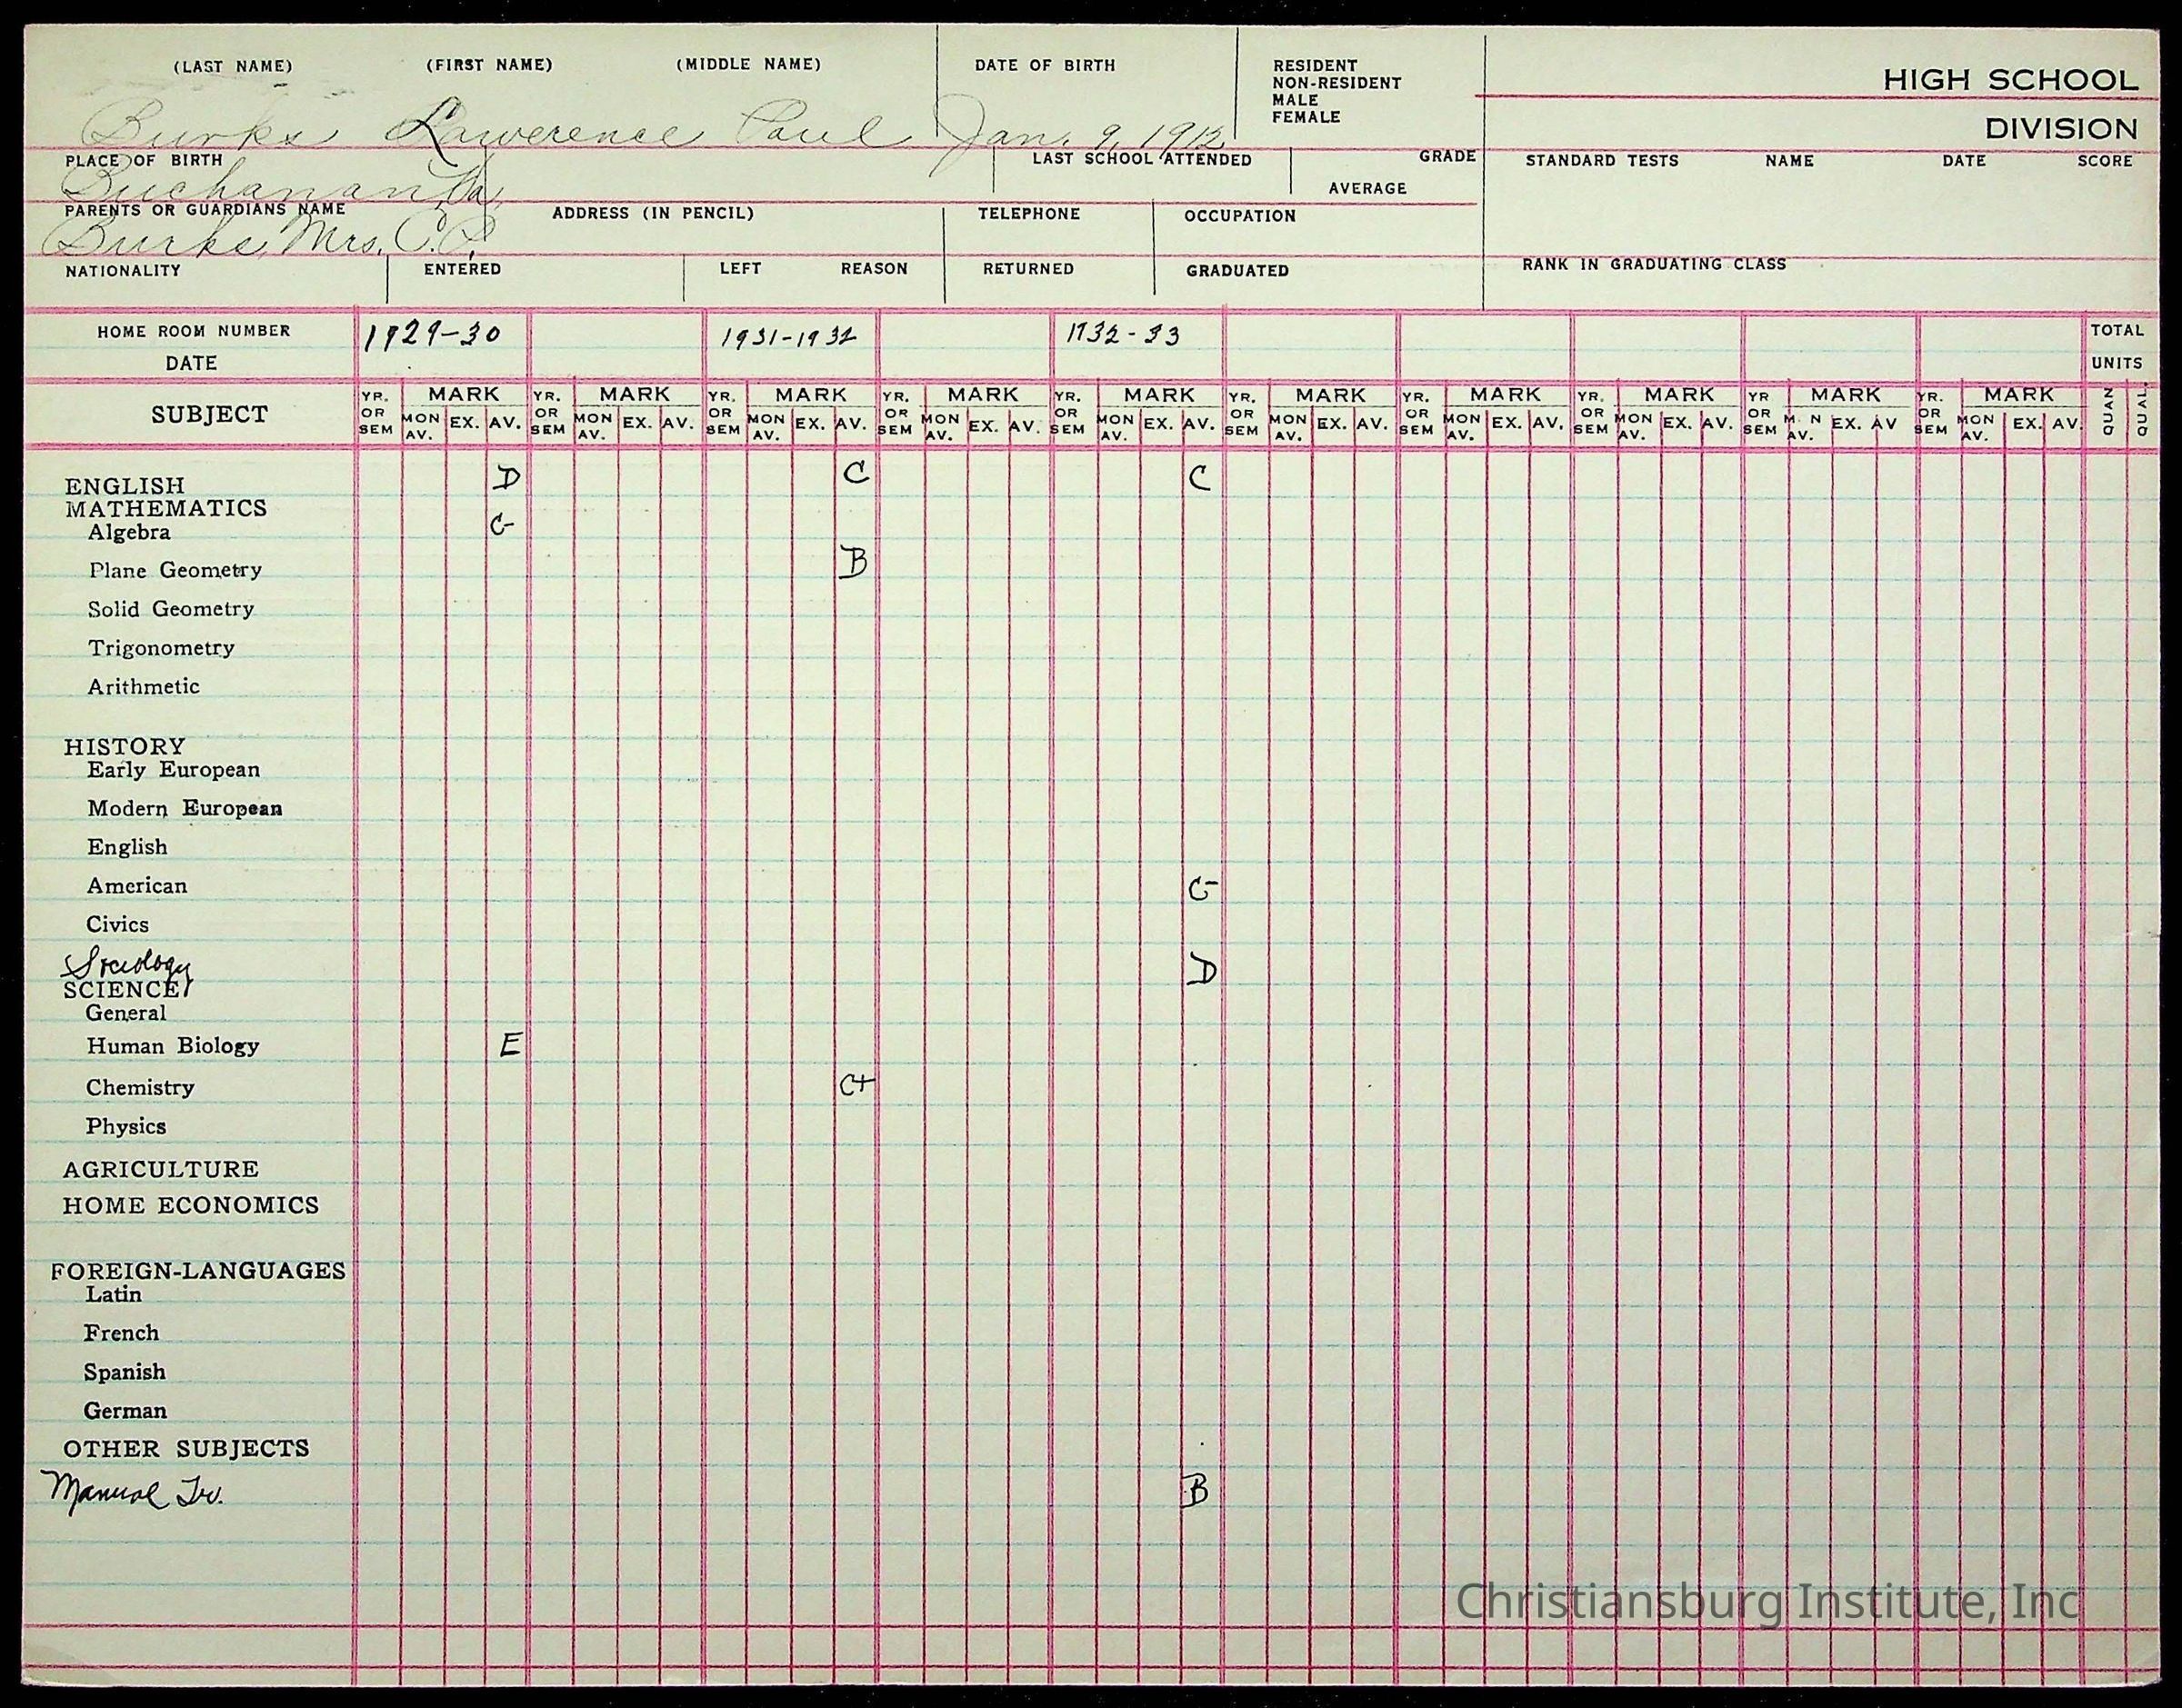 (LAST NAME) (FIRST NAME) (MIDDLE NAME) DATE OF BIRTH RESIDENT HIGH SCHOOL
NON-RESIDENT
MALE
FEMALE
DIVISION
Burks Lawerence Paul Jan. 9, 1912
PLACE OF BIRTH LAST SCHOOL ATTENDED GRADE STANDARD TESTS NAME DATE SCORE
Buchanan, Va. AVERAGE
PARENTS OR GUARDIANS NAME ADDRESS (IN PENCIL) TELEPHONE OCCUPATION
Burks, Mrs. C.P.
NATIONALITY ENTERED LEFT REASON RETURNED GRADUATED RANK IN GRADUATING CLASS
HOME ROOM NUMBER 1929-30 1931-1932 1932-33 TOTAL
DATE UNITS
SUBJECT
YR. MARK YR. MARK YR. MARK YR. MARK YR. MARK YR. MARK YR. MARK YR. MARK YR MARK YR. MARK QUAN QUAL.
OR MON EX. AV. OR MON EX. AV. OR MON EX. AV. OR MON EX. AV. OR MON EX. AV. OR MON EX. AV. OR MON EX. AV. OR MON EX. AV. OR M. N EX. AV OR MON EX. AV.
SEM AV. SEM AV. SEM AV. SEM AV. SEM AV. SEM AV. SEM AV. SEM AV. SEM AV. SEM AV.
ENGLISH D C C
MATHEMATICS
Algebra C-
Plane Geometry B
Solid Geometry
Trigonometry
Arithmetic
HISTORY
Early European
Modern European
English
American C-
Civics
Sociology D
SCIENCE
General
Human Biology E
Chemistry C+
Physics
AGRICULTURE
HOME ECONOMICS
FOREIGN-LANGUAGES
Latin
French
Spanish
German
OTHER SUBJECTS
Manual Tr. B
Christiansburg Institute, Inc